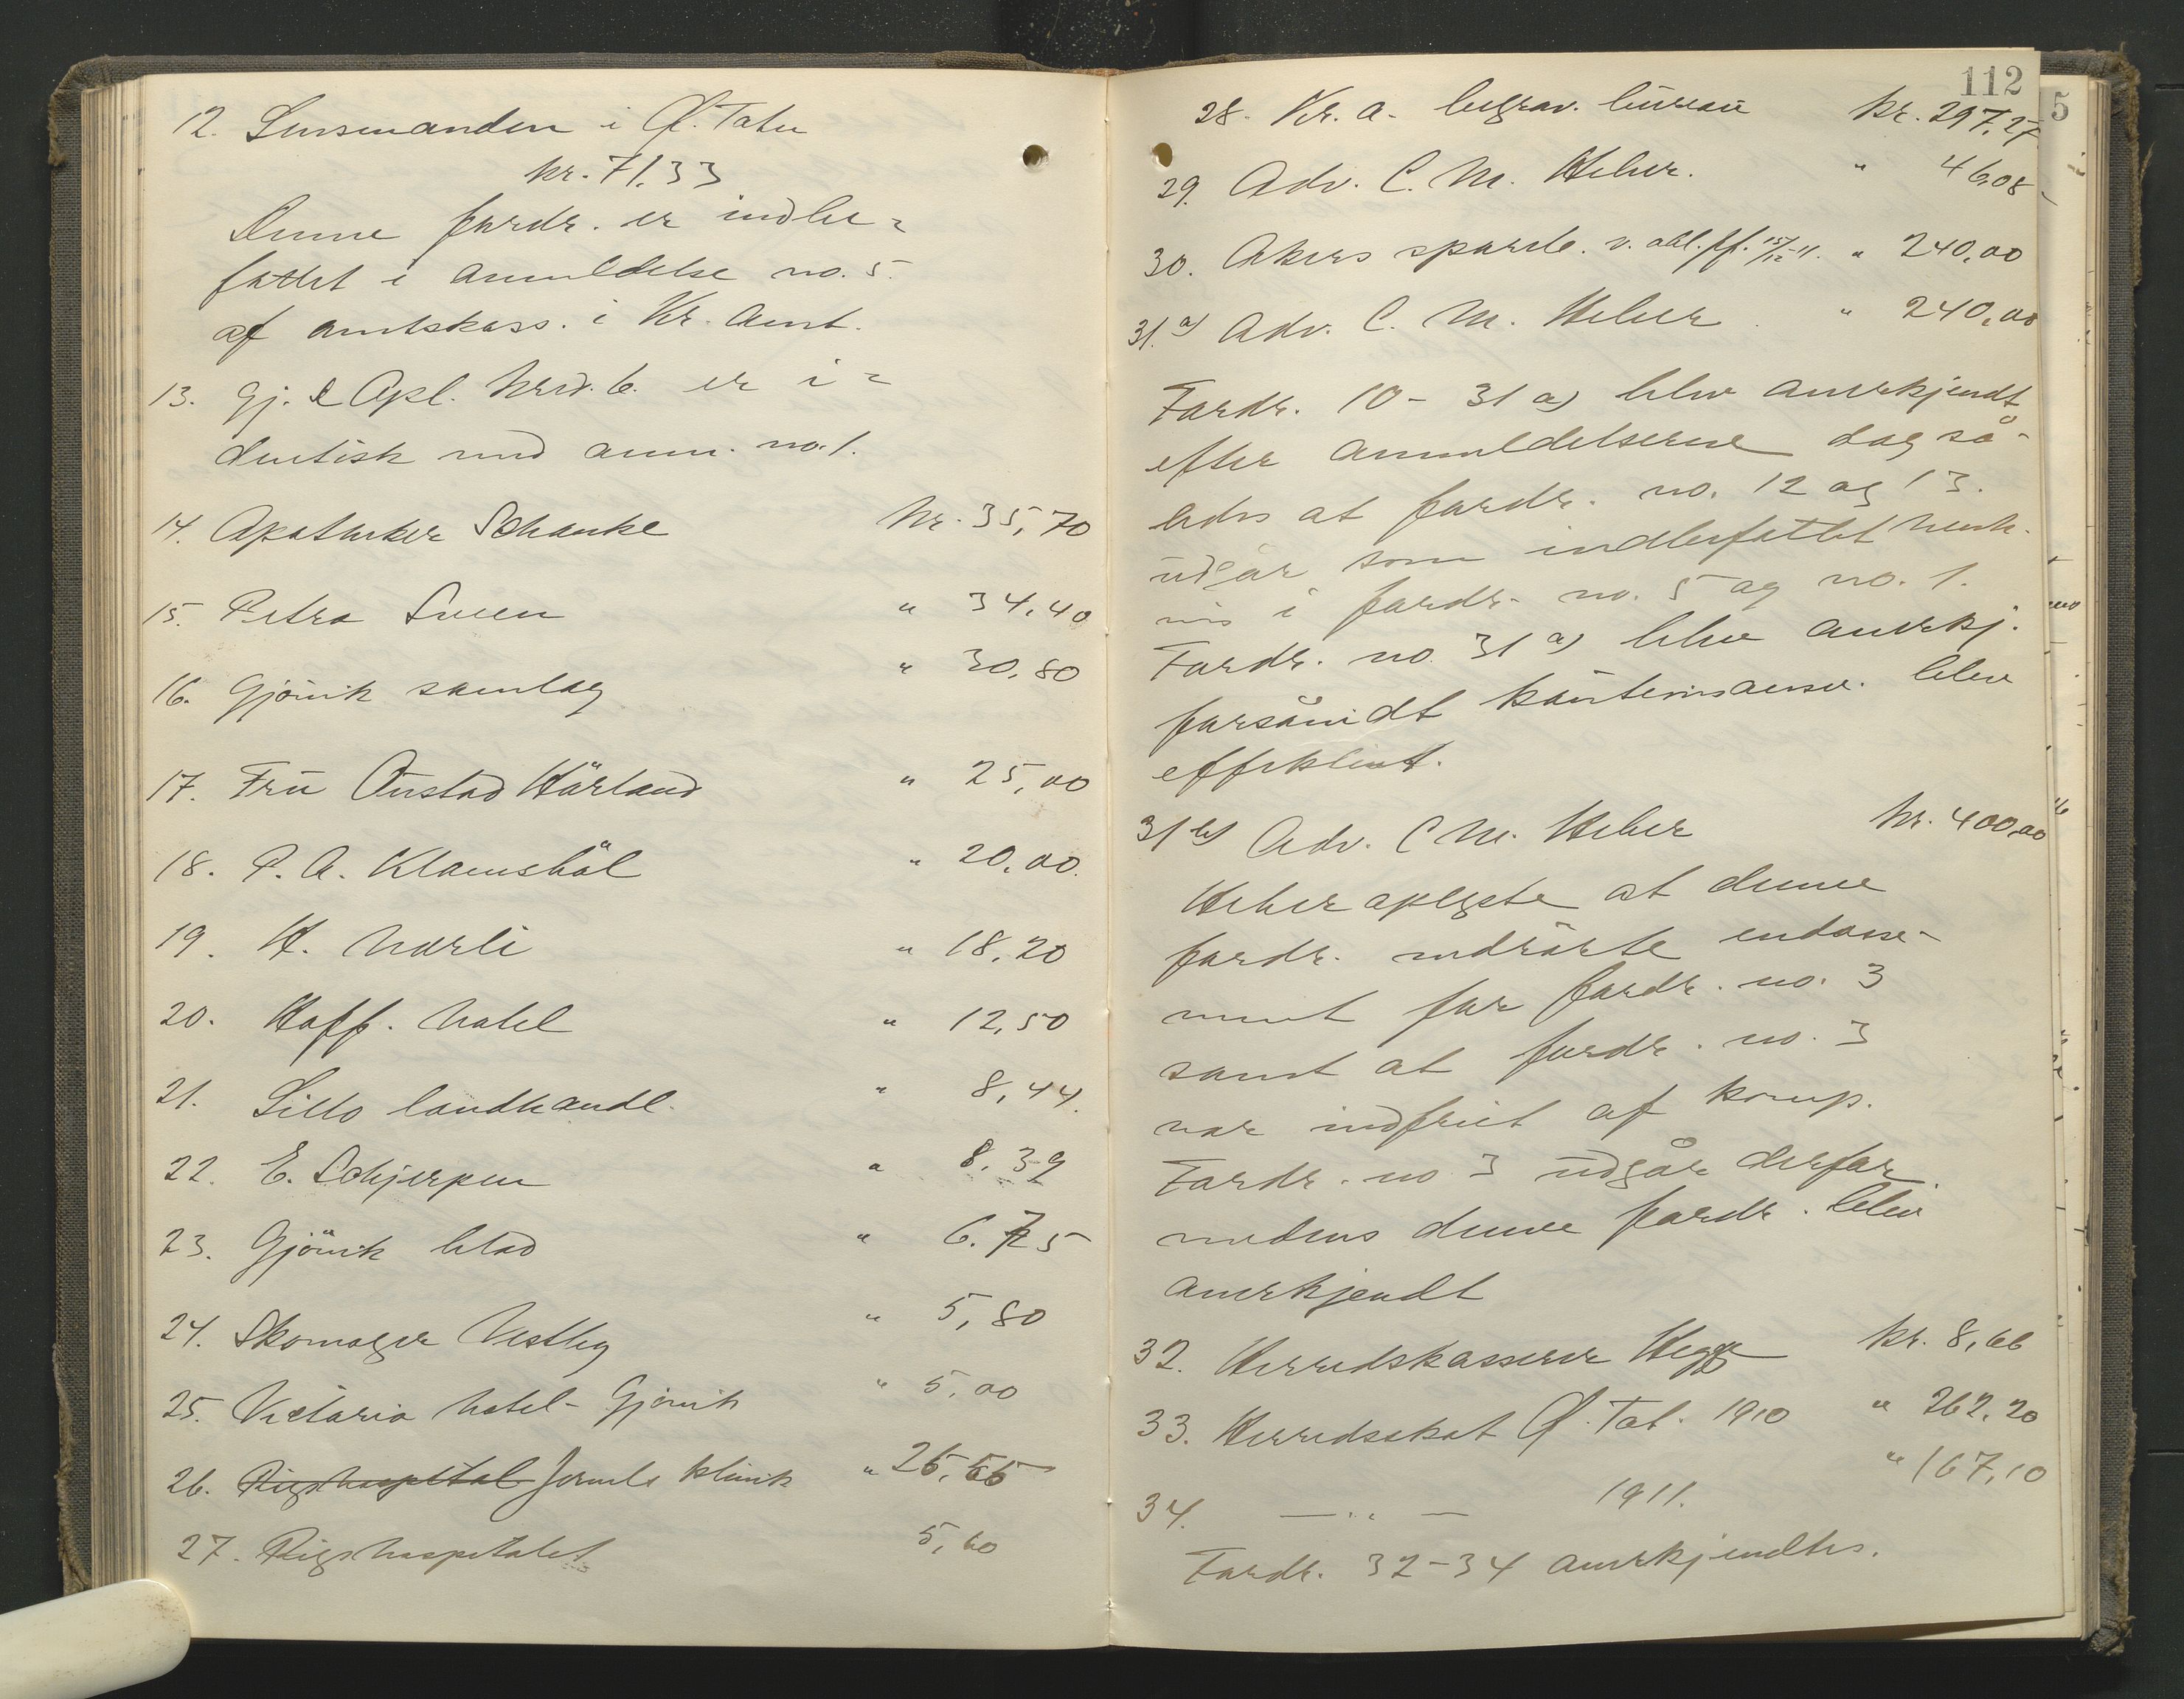 12. Lensmanden i Ø. Toten
kr. 71,33
Denne fordr. er indbe=
fattet i anmeldelse no. 5
af amtskass. i Kr. Amt.
13. Gj. & Opl. krd.b. er i=
dentisk med anm. no. 1.
14. Apotheker Schanke kr. 35,70
15. Petra Sveen " 34,40
16. Gjövik samlag " 30,80
17. Fru Onstad Hårland " 25,00
18. P. A. Klameshål " 20,00.
19. H. Narli " 18,20
20. Hoff. hotel " 12,50
21. Lillo landhandl. " 8,44.
22. E. Schjerpen " 8.39
23. Gjövik blad " 6.75
24. Skomager Vestby " 5,80
25. Victoria hotel - Gjövik " 5,00
26. Rigshospital klinik "
27. Rigshospitalet 5,60
112
5
28. Kr.a. begrav. büreau kr. 297,27
29. Adv. C. M. Heber. " 46,08
30. Akers spareb. v. obl. pf. 15/12-11. " 240,00
31.a) Adv. C. M. Heber. " 240,00
Fordr. 10 - 31 a) blev anerkjendt
efter anmeldelserne dog så-
ledes at fordr. no. 12 og 13.
udgår som indbefattet henh.
vis i fordr. no. 5 og no. 1.
Fordr. no. 31 a) blev anerkj.
forsåvidt kautionsansv. blev
effektivt.
31 b) Adv. C. M. Heber kr. 400,00
Heber oplyste at denne
fordr. vedrörte endosse-
ment for fordr. no. 3
samt at fordr. no. 3
var indfriet af komp.
Fordr. no 3 udgår derfor
medens denne fordr. blev
anerkjendt
32. Herredskasserer Hegge kr. 8,66
33. Herredsskat Ø. Tot. 1910 " 262,20
34. — " — 1911. " 167,10
Fordr. 32-34 anerkjendtes.